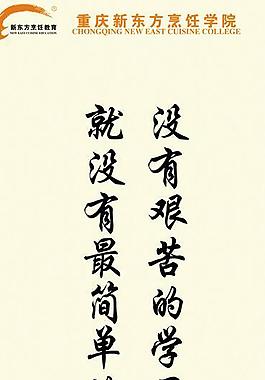 新东方烹饪教育
NEW EAST CUISINE EDUCATION
重庆新东方烹饪学院
CHONGQING NEW EAST CUISINE COLLEGE
没有艰苦的学
就没有最简单